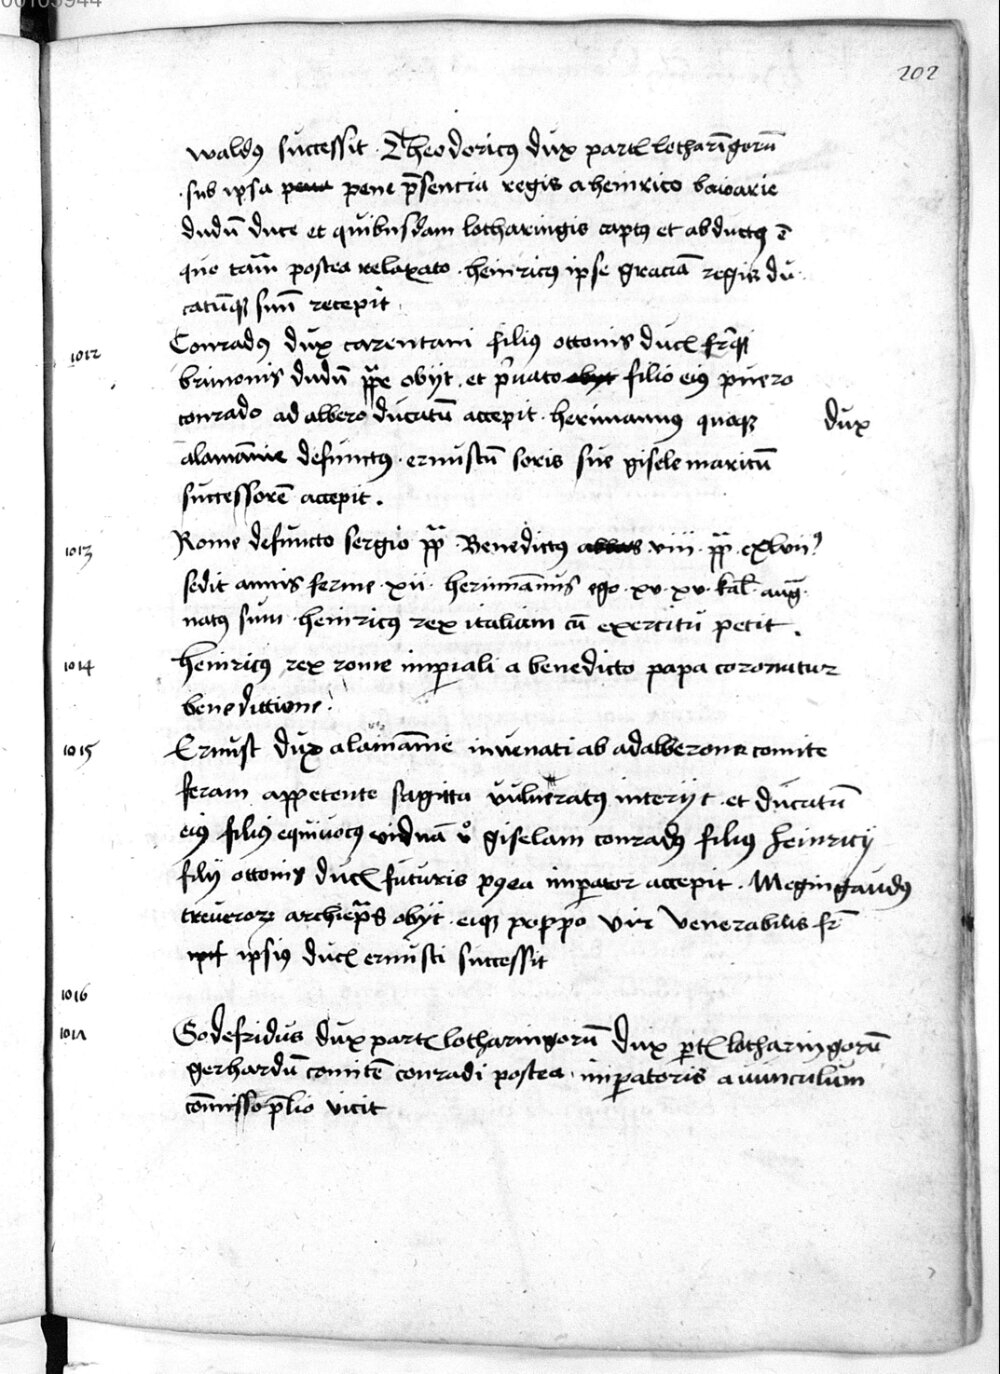 202
waldꝯ successit · Theodericꝯ dux partꝭ lotharīgorū
sub ipsa pene p̄sencia regis a heinrico baioarie
dudū duce et quibusdam lotharingis captꝯ et abductꝯ ē
quo tam̄ postea relaxato · heinricꝯ ipse graciā regis du
catūqꝫ suū recepit
1012 Conradꝯ dux carentani filiꝯ ottonis ducꝭ fr̄qꝫ
brunonis dudū pp̄e obijt · et p̄uato filio eiꝯ puero
conrado adalbero ducatū accepit · herimannꝯ quoqꝫ dux
alamānie defunctus · ernustū soris sue gisele maritū
successorē accepit .
1013 Rome defuncto sergio pp̄ · Benedictꝯ viii · pp̄ · cxlvii
sedit annis ferme · xii · herimānus ego · xv · xv · kal̄ · auḡ ·
natꝯ sum · heinricꝯ rex italiam cū exercitu petit .
1014 heinricꝯ rex rome imꝑiali a benedicto papa coronatur
benedictione
1015 Ernust dux alamānie in venati ab adalberone comite
feram appetente sagitta vulneratꝯ interijt · et ducatū
eiꝯ filiꝯ equivocꝯ viduā v° giselam conradꝯ filiꝯ heinricij
filij ottonis ducꝭ futuris p9ea imꝑator accepit . Megingaudꝯ
treverorꝝ archiep̄s obijt · eiqꝫ poppo vir venerabilis fr̄
ipsiꝯ ducꝭ ernusti successit
1016
1017 Godefridus dux partꝭ lotharingorū dux ꝑtꝭ lotharingorū
gerhardū comitē conradi postea imꝑatoris avunculum
cōmisso p̄lio vicit